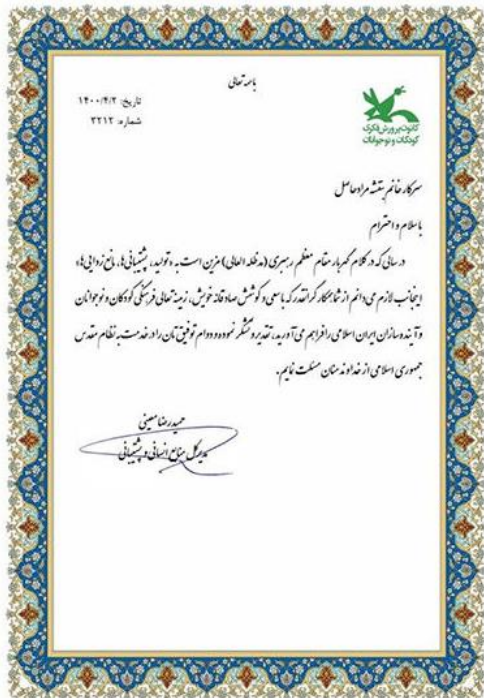 باسمه تعالی
تاریخ: ۱۴۰۰/۴/۲
شماره: ۳۲۱۲
کانون پرورش فکری
کودکان و نوجوانان
سرکار خانم بنفشه مرادحاصل
با سلام و احترام
در سالی که در کلام گهربار مقام معظم رهبری (مدظله العالی) مزین است به «تولید، پشتیبانی ها، مانع زدایی ها»
اینجانب لازم می دانم از شما همکار گرانقدر که با سعی و کوشش صادقانه خویش، زمینه تعالی فرهنگی کودکان و نوجوانان
و آینده سازان ایران اسلامی را فراهم می آورید، تقدیر و تشکر نموده و دوام توفیق تان را در خدمت به نظام مقدس
جمهوری اسلامی از خداوند منان مسئلت نمایم.
حمیدرضا معینی
مدیرکل منابع انسانی و پشتیبانی